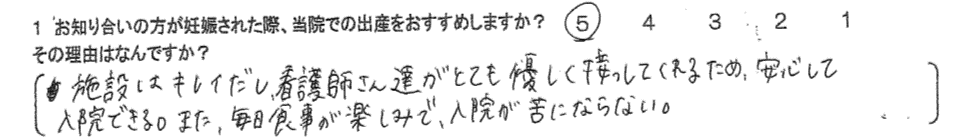 1 お知り合いの方が妊娠された際、当院での出産をおすすめしますか? 5 4 3 2 1
その理由はなんですか?
施設はキレイだし、看護師さん達がとても優しく接してくれるため、安心して
入院できる。また、毎日食事が楽しみで、入院が苦にならない。